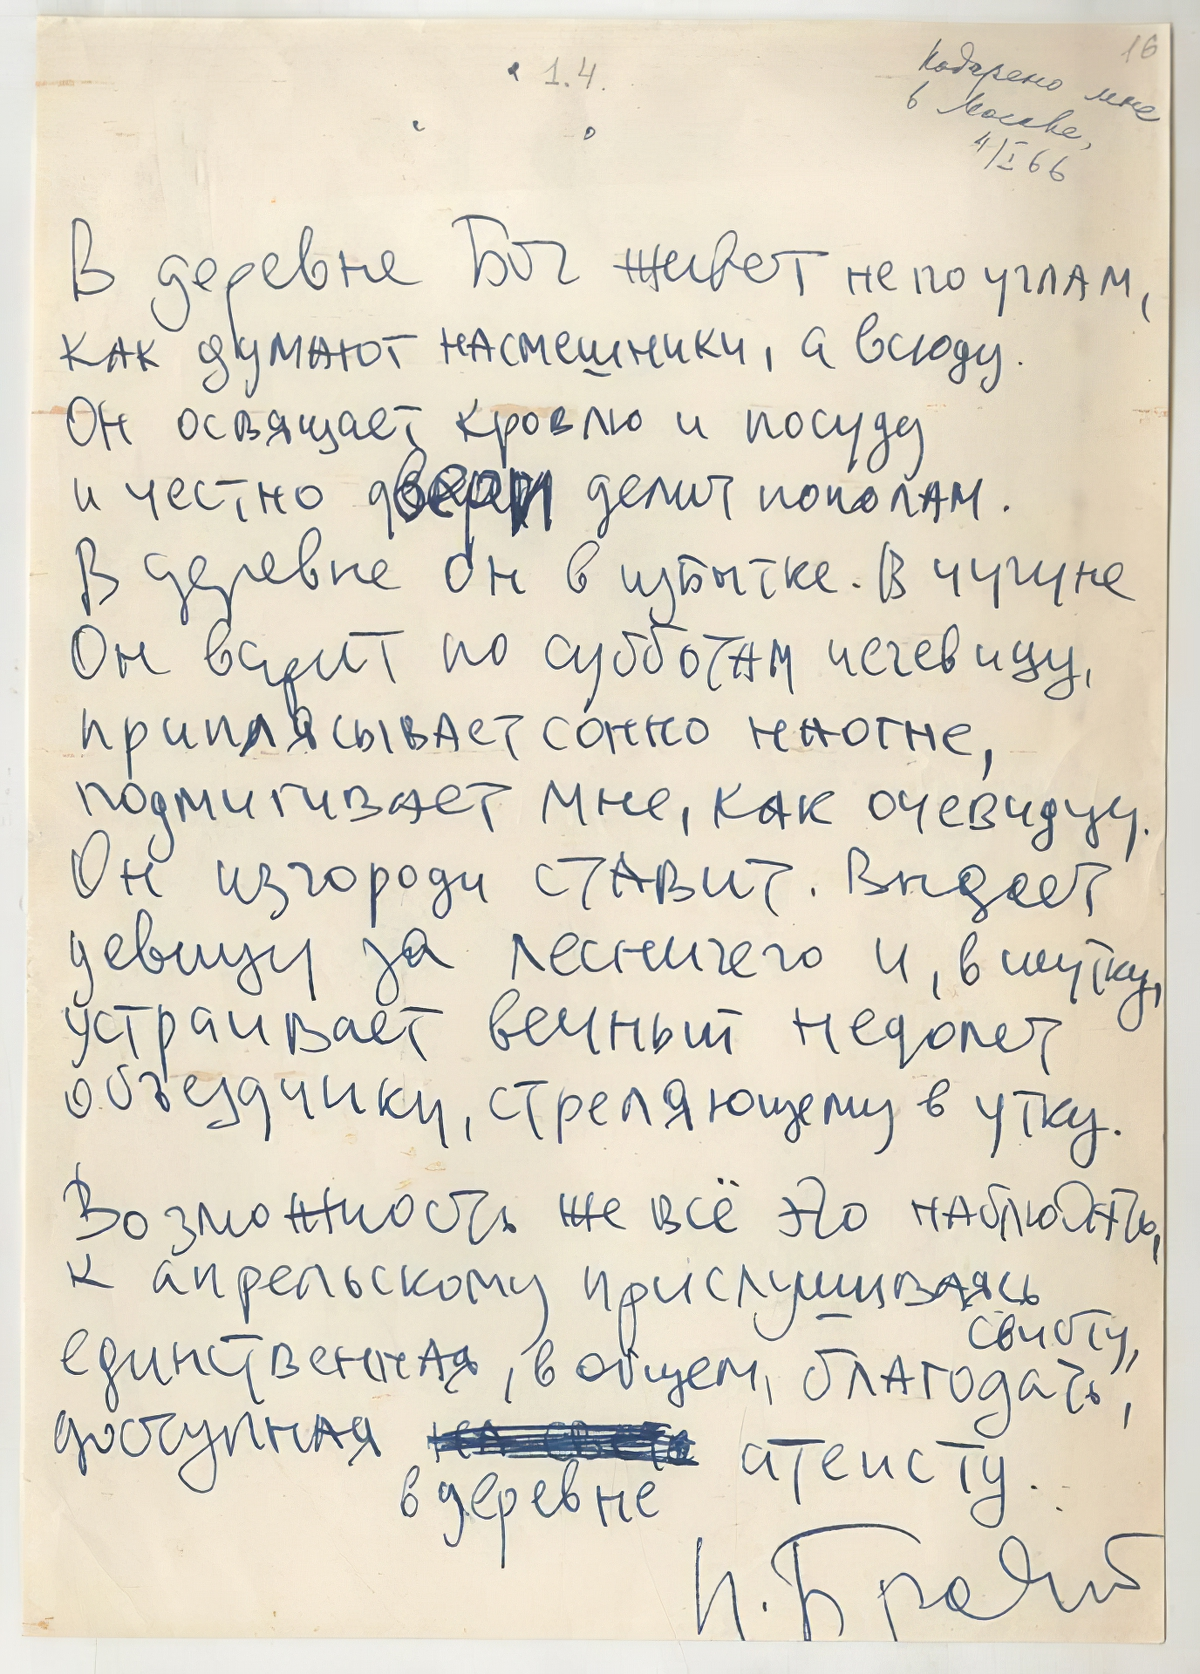 16
1.4.
Подарено мне
в Москве,
4/I 66
В деревне Бог живет не по углам,
как думают насмешники, а всюду.
Он освящает кровлю и посуду
и честно двери делит пополам.
В деревне он в избытке. В чугуне
Он варит по субботам чечевицу,
приплясывает сонно на огне,
подмигивает мне, как очевидцу.
Он изгороди ставит. Выдает
девицу за лесничего и, в шутку,
устраивает вечный недолет
объездчику, стреляющему в утку.
Возможность же всё это наблюдать,
к апрельскому прислушиваясь
свисту,
единственная, в общем, благодать,
доступная атеисту.
в деревне
И. Бродский